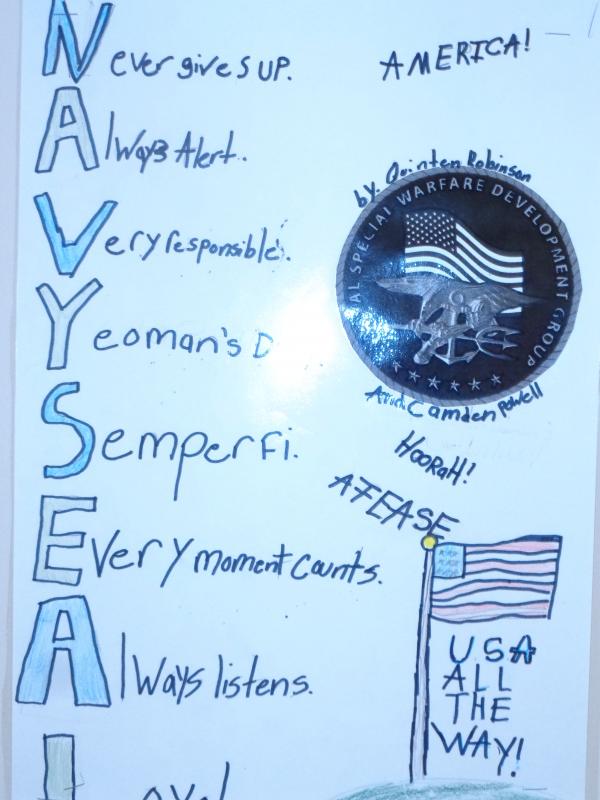 Never gives up.
AMERICA!
Always Alert.
by. Quinten Robinson
AL SPECIAL WARFARE DEVELOPMENT GROUP
Very responsible.
Yeoman's D
And Camden Powell
Semper Fi.
HOORaH!
ATEASE
Every moment counts.
Always listens.
USA
ALL
THE
WAY!
Loyal